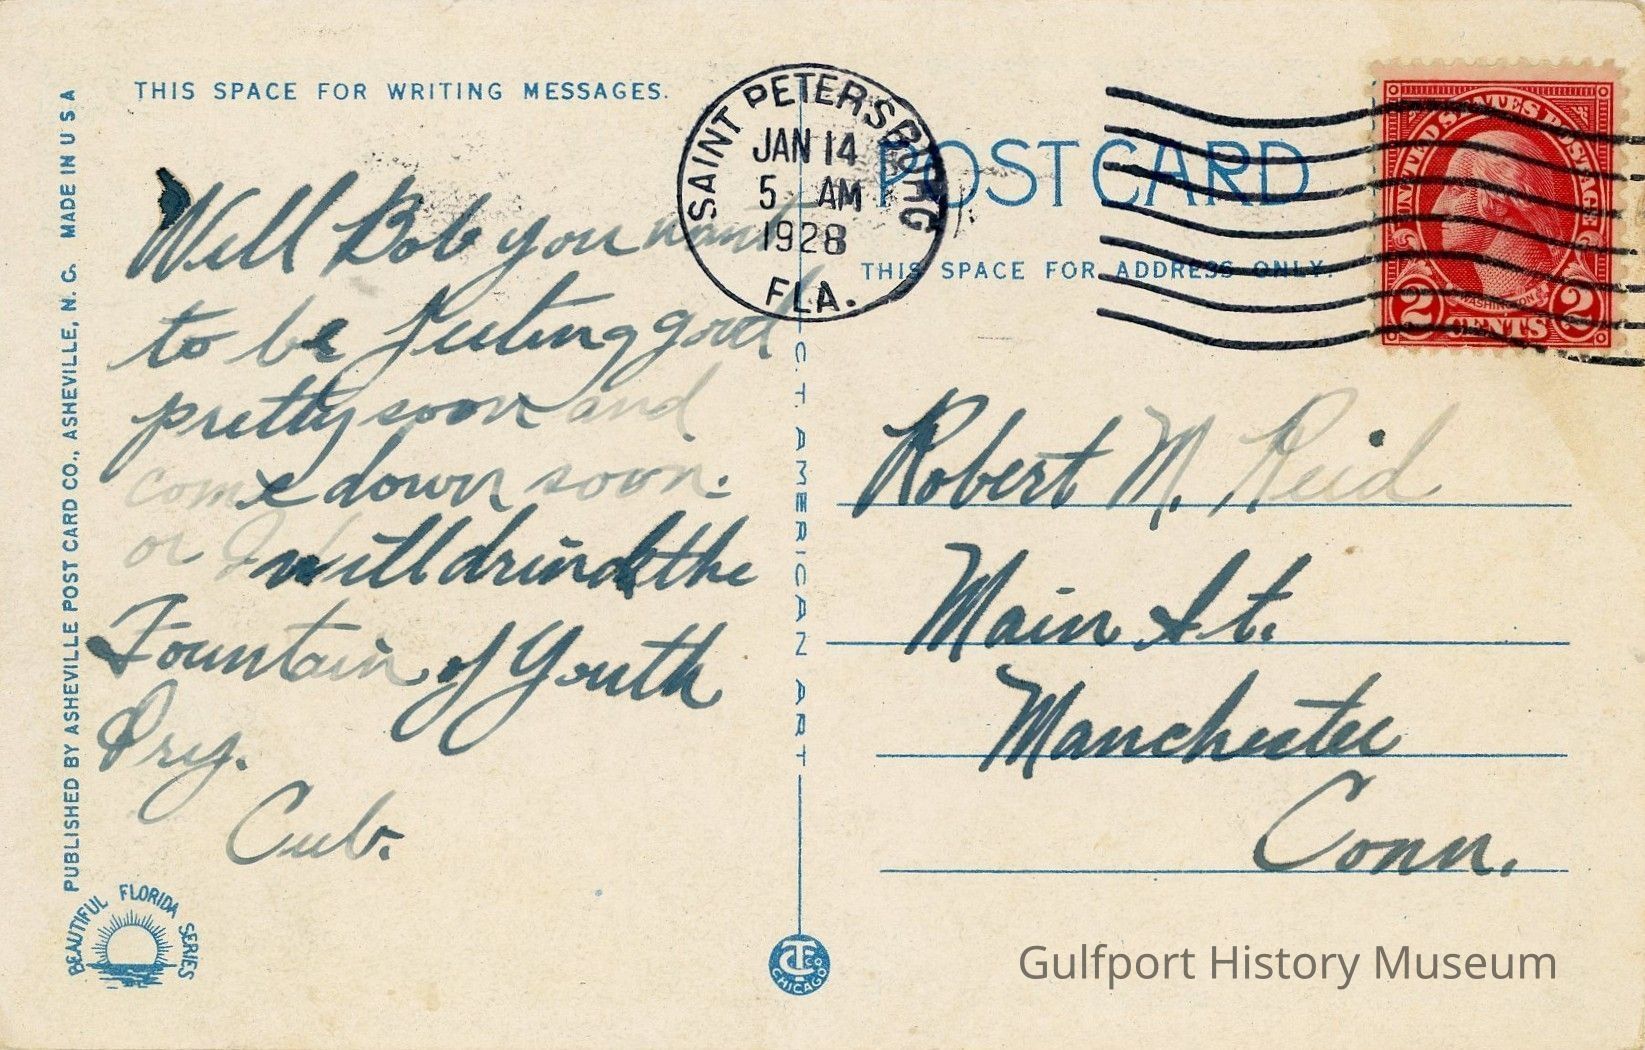 THIS SPACE FOR WRITING MESSAGES.
Well Bob you want
to be feeling good
pretty soon and
come down soon.
or I will drink the
Fountain of Youth
Dry.
Cub.
PUBLISHED BY ASHEVILLE POST CARD CO., ASHEVILLE, N. C. MADE IN U S A
BEAUTIFUL FLORIDA SERIES
C. T. AMERICAN ART
CHICAGO
SAINT PETERSBURG
JAN 14
5 AM
1928
FLA.
POST CARD
THIS SPACE FOR ADDRESS ONLY.
UNITED STATES POSTAGE
WASHINGTON
2 CENTS 2
Robert M. Reid
Main St.
Manchester
Conn.
Gulfport History Museum